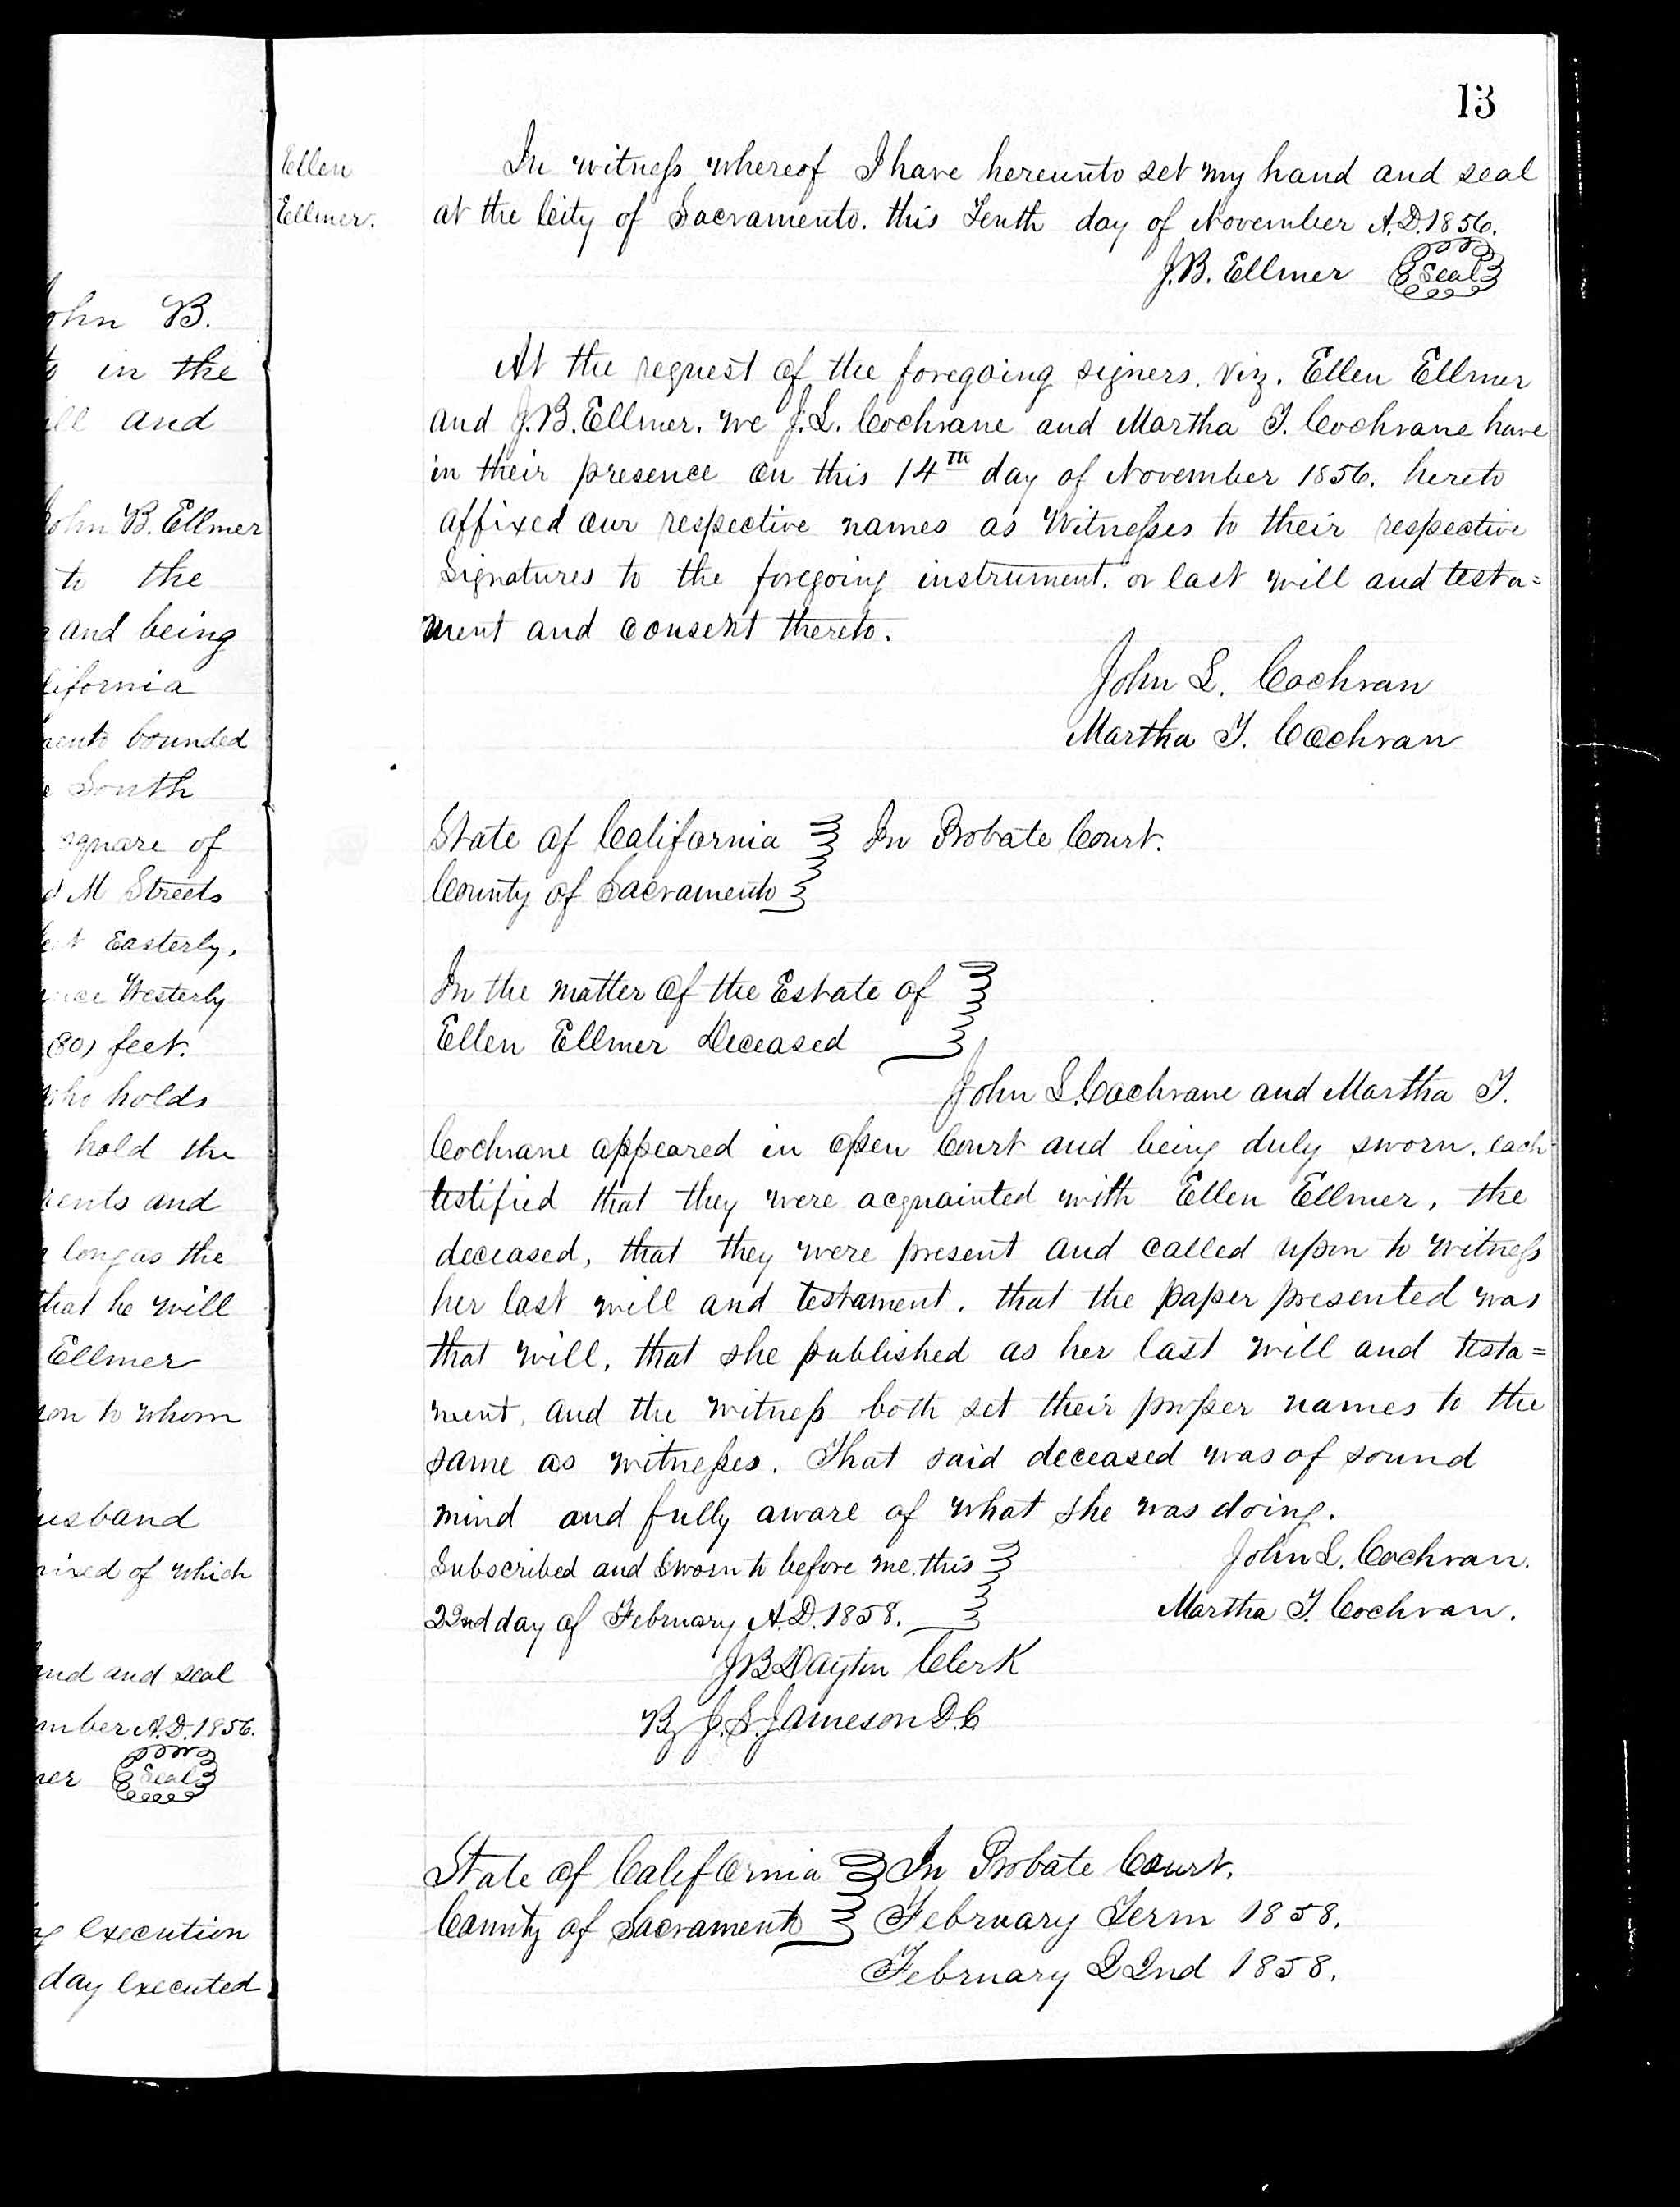 13
Ellen
Ellmer.
In witness whereof I have hereunto set my hand and seal
at the City of Sacramento. this Tenth day of November A.D. 1856.
J.B. Ellmer Seal
At the request of the foregoing signers. viz. Ellen Ellmer
and J.B. Ellmer. we J.L. Cochrane and Martha T. Cochrane have
in their presence on this 14th day of November 1856. hereto
affixed our respective names as Witnesses to their respective
Signatures to the foregoing instrument. or last will and testa=
ment and consent thereto.
John L. Cochran
Martha T. Cochran
State of California In Probate Court.
County of Sacramento
In the matter of the Estate of
Ellen Ellmer Deceased
John L. Cochrane and Martha T.
Cochrane appeared in open Court and being duly sworn. each
testified that they were acquainted with Ellen Ellmer, the
deceased, that they were present and called upon to witness
her last will and testament. that the paper presented was
that will, that she published as her last will and testa=
ment, and the witness both set their proper names to the
same as witnesses. That said deceased was of sound
mind and fully aware of what she was doing.
Subscribed and Sworn to before me this John L. Cochran.
22nd day of February A.D. 1858. Martha T. Cochran.
J B Dayton Clerk
By J.S. Jameson D.C
State of California In Probate Court.
County of Sacramento February Term 1858.
February 22nd 1858.
ohn B.
in the
and
John B. Ellmer
to the
and being
lifornia
bounded
South
square of
M Streets
Easterly.
Westerly
(80) feet.
who holds
hold the
rents and
long as the
that he will
Ellmer
son to whom
usband
of which
and and seal
mber A.D. 1856.
mer Seal
execution
day executed